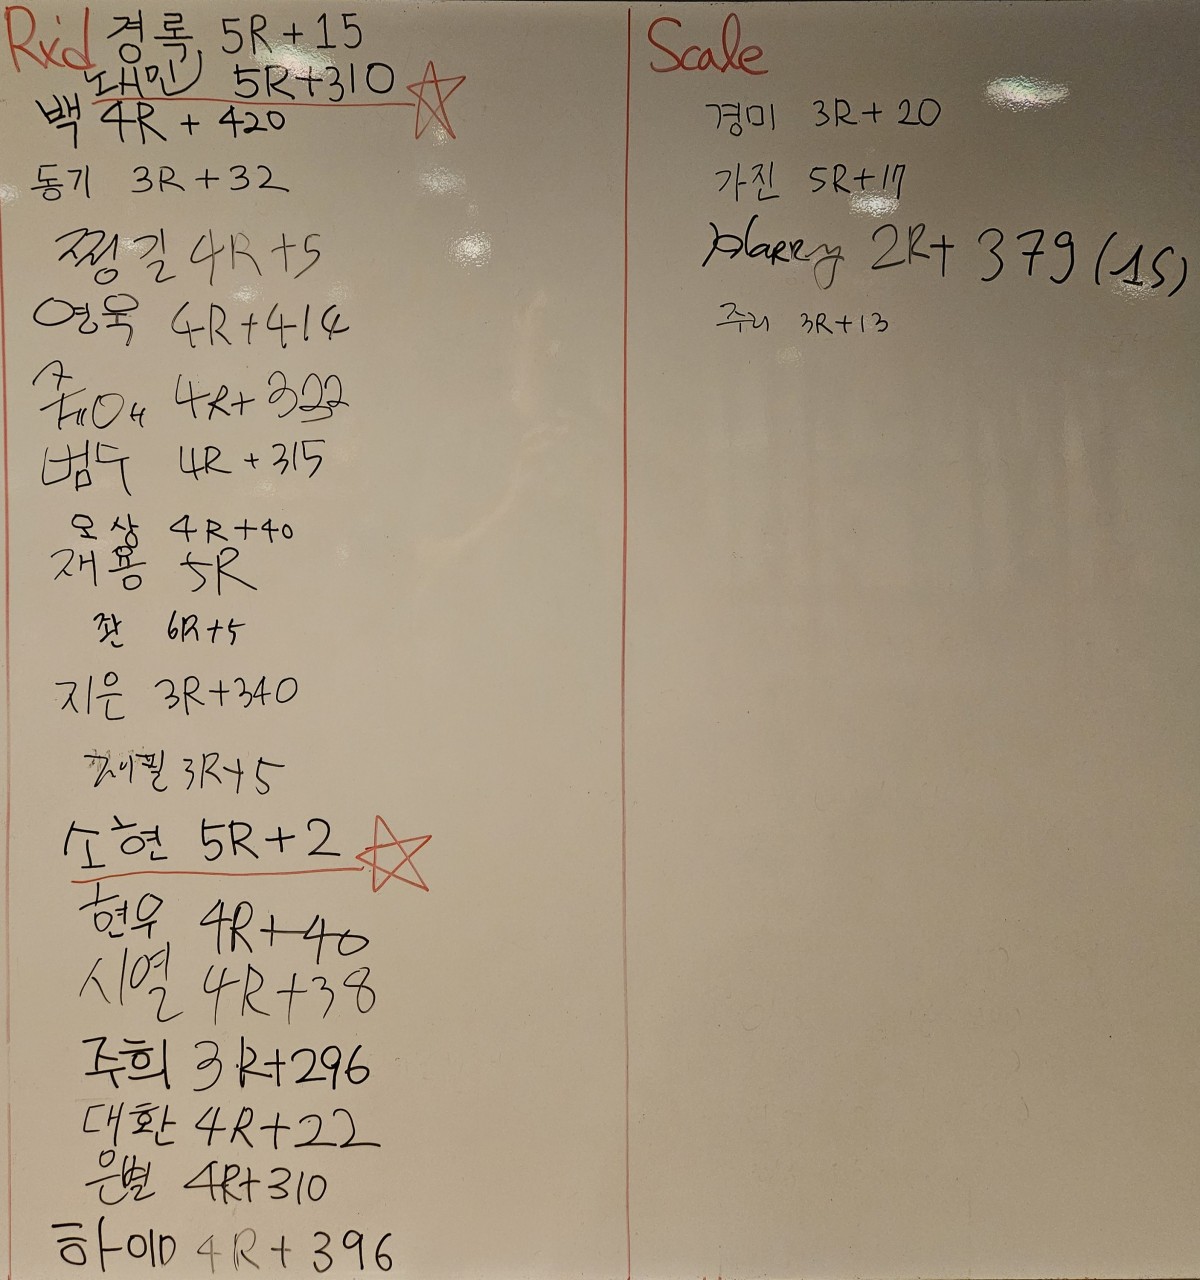 Rx'd 경록 5R+15
태민 5R+310
백 4R + 420
동기 3R+32
찡길 4R+5
영욱 4R+414
4R+322
범두 4R+315
모상 4R+40
재용 5R
좐 6R+5
지은 3R+340
제이필 3R+5
소현 5R+2
현우 4R+40
시열 4R+38
주희 3R+296
대환 4R+22
은별 4R+310
하임 4R+396
Scale
경미 3R+20
가진 5R+17
Harry 2R+ 379 (15)
주리 3R+13